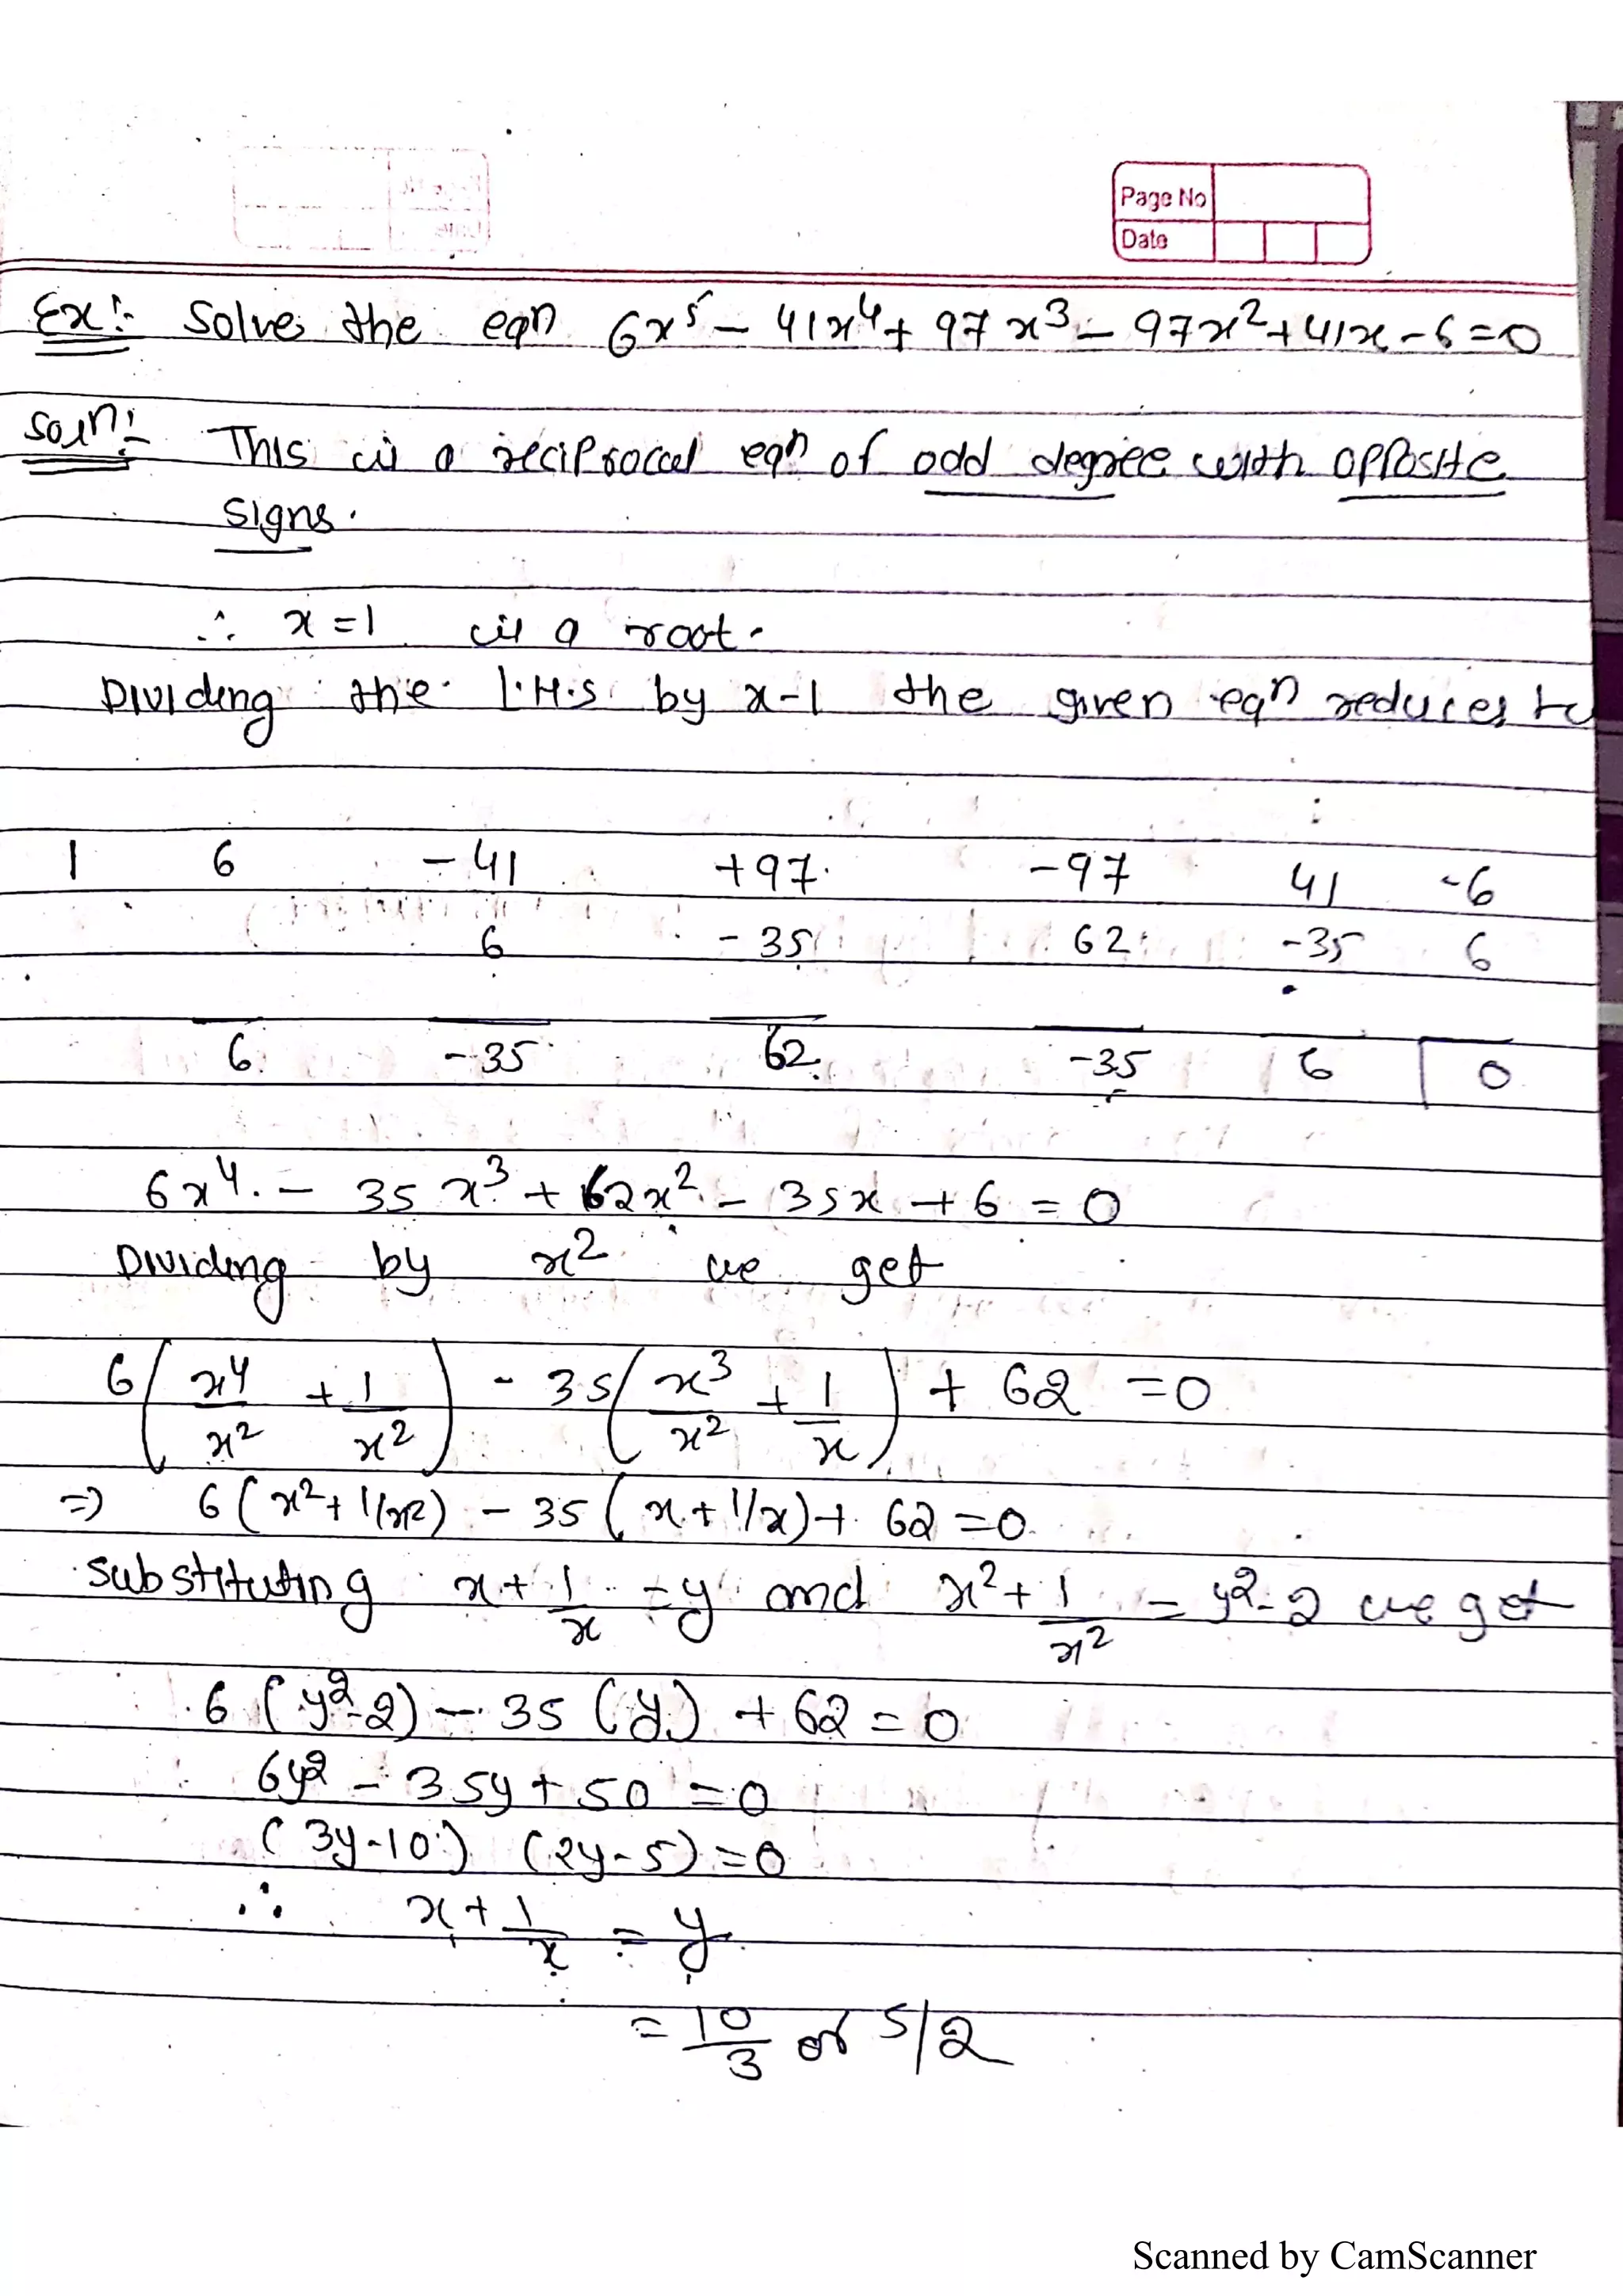 Page No
Date
Ex:- Solve the eqn 6x⁵ - 41x⁴ + 97x³ - 97x² + 41x - 6 = 0
Soln:- This is a reciprocal eqn of odd degree with opposite
signs.
∴ x = 1 is a root.
Dividing the L.H.S by x-1 the given eqn reduces to
1 6 -41 +97 -97 41 -6
6 -35 62 -35 6
6 -35 62 -35 6 0
6x⁴ - 35x³ + 62x² - 35x + 6 = 0
Dividing by x² we get
6(x⁴/x² + 1/x²) - 35(x³/x² + 1/x) + 62 = 0
⇒ 6(x² + 1/x²) - 35(x + 1/x) + 62 = 0
substituting x + 1/x = y and x² + 1/x² = y² - 2 we get
6(y² - 2) - 35(y) + 62 = 0
6y² - 35y + 50 = 0
(3y - 10) (2y - 5) = 0
∴ x + 1/x = y
= 10/3 or 5/2
Scanned by CamScanner